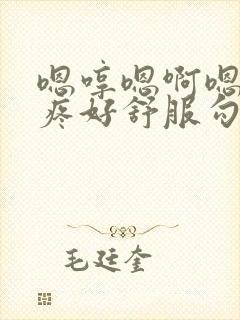 嗯哼嗯啊嗯
疼好舒服勾
毛廷奎